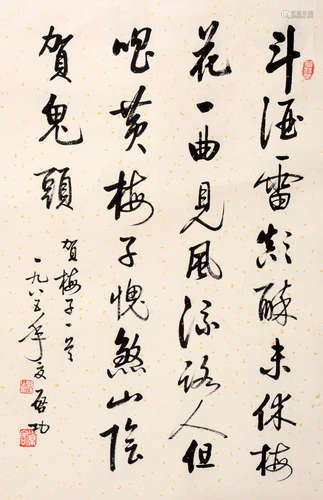 斗酒雷顛醉未休梅
花一曲見風流路人但
唱黄梅子愧煞山陰
賀鬼頭
賀梅子一首
一九八五年夏 啟功